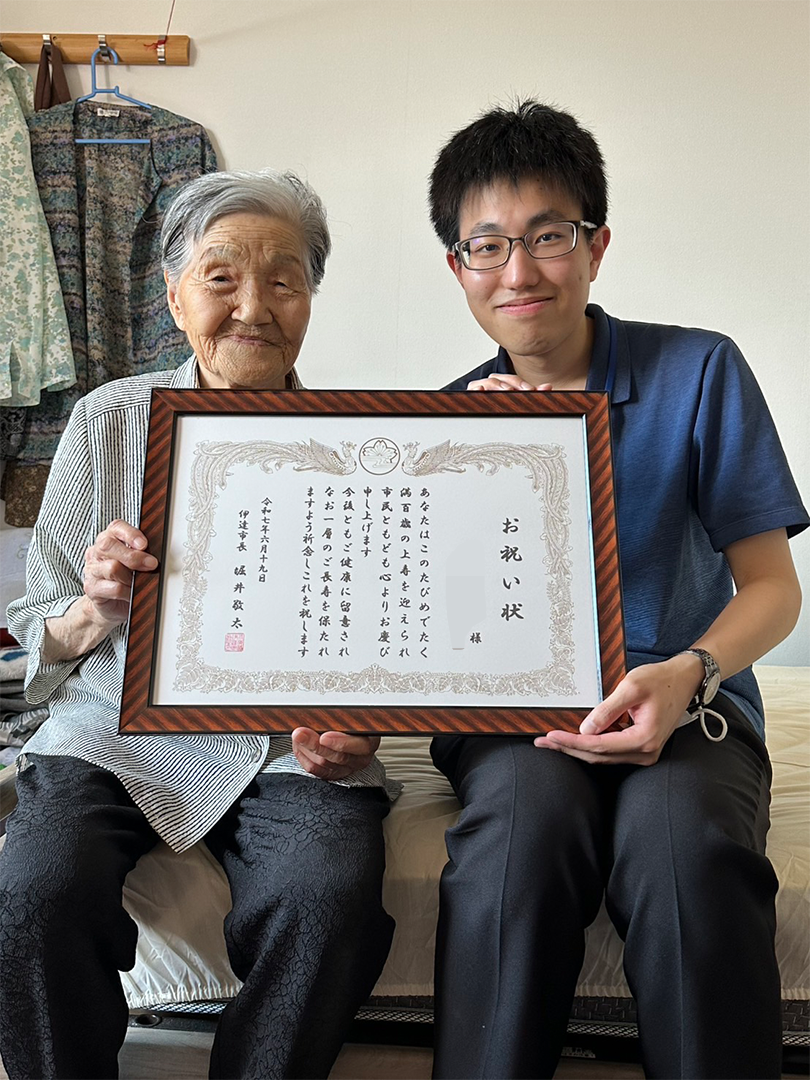 お祝い状
様
あなたはこのたびめでたく
満百歳の上寿を迎えられ
市民ともども心よりお慶び
申し上げます
今後ともご健康に留意され
なお一層のご長寿を保たれ
ますよう祈念しこれを祝します
令和七年六月十九日
伊達市長 堀井敬太